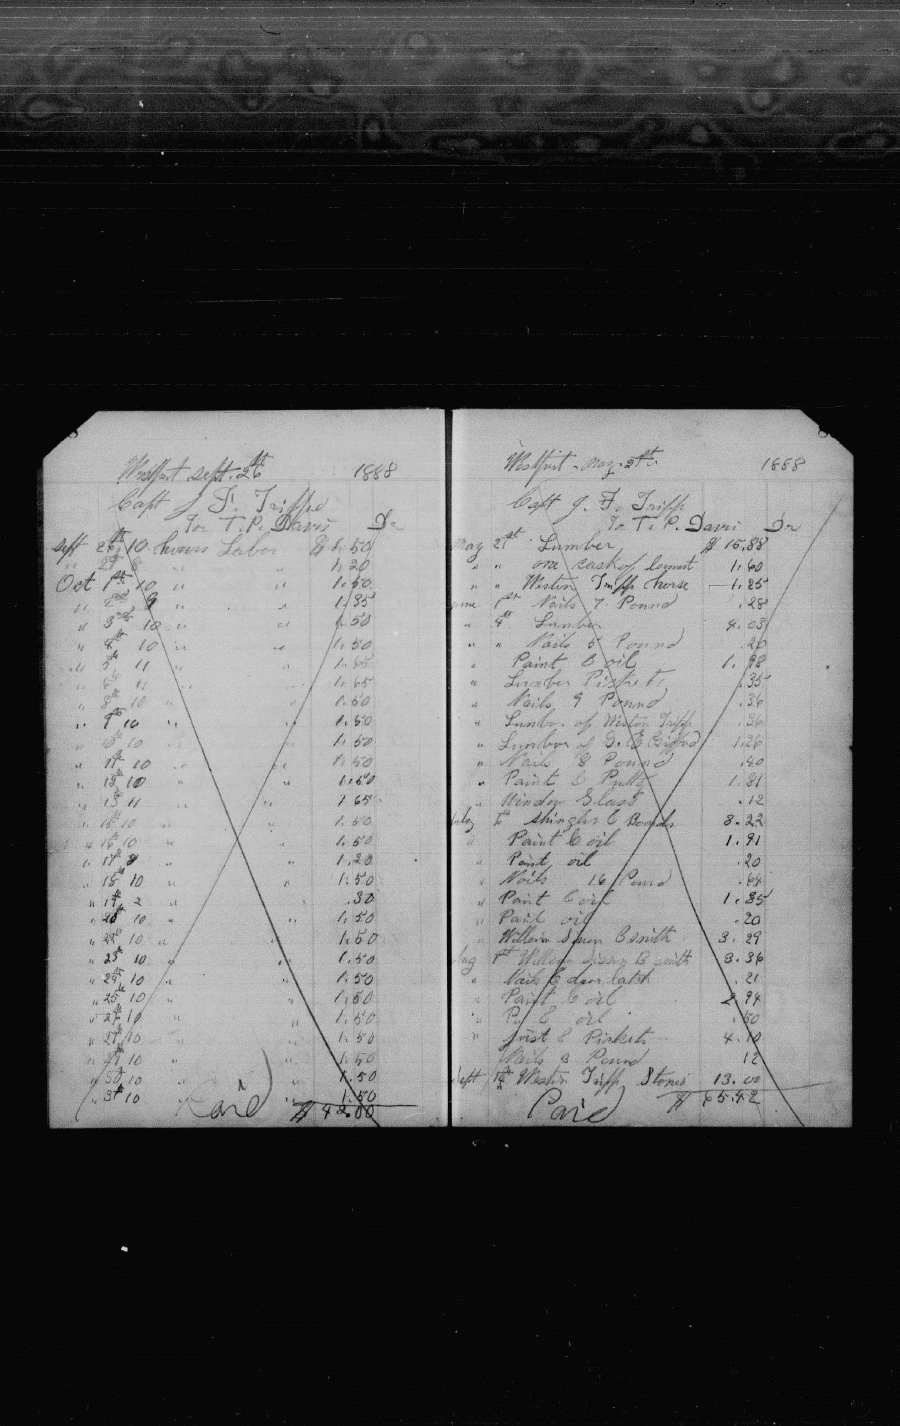 Westport Sept. 26th 1888
Capt J F. Tripp
To T. P. Davis Dr
Sept 26th 10 hours Labor $ 1.50
" 8 " " 1.20
Oct 1st 10 " " 1.50
" 2nd 9 " " 1.35
" 3rd 10 " " 1.50
" 4th 10 " " 1.50
" 5th 11 " " 1.65
" 6th 11 " " 1.65
" 8th 10 " " 1.50
" 9th 10 " " 1.50
" 10th 10 " " 1.50
" 11th 10 " " 1.50
" 12th 10 " " 1.50
" 13th 11 " " 1.65
" 15th 10 " " 1.50
" 16th 10 " " 1.50
" 17th 8 " " 1.20
" 18th 10 " " 1.50
" 19th 2 " .30
" 20th 10 " " 1.50
" 22nd 10 " " 1.50
" 23rd 10 " " 1.50
" 24th 10 " " 1.50
" 25th 10 " " 1.50
" 10 " " 1.50
" 10 " " 1.50
" 29th 10 " 1.50
" 30th 10 " " 1.50
" 31st 10 " " 1.50
Paid $ 42.00
Westport May 21st. 1888
Capt J. F. Tripp
To T. P. Davis Dr
May 21st Lumber $ 15.88
" " one cask of Cement 1.60
" " Weston Tripp horse 1.25
June 1st Nails 7 Pound .28
" 4th Lumber 4.03
" " Nails 5 Pound .20
" Paint & oil 1.98
" Lumber Pickets .35
" Nails 9 Pound .36
" Lumber of Weston Tripp .36
" Lumber of G. E. 1.26
" Nails Pound
" Paint & Putty 1.81
" Window Glass .12
July 6 Shingles & Boards 3.22
" Paint & oil 1.91
" Paint oil .20
" Nails 16 Pound .64
" Paint & oil 1.85
" Paint oil .20
" & Smith 3.29
Aug 1st & Smith 3.36
" Nails & door latch .21
" Paint & oil 2.94
" P. & oil .50
" Pickets 4.10
Nails 3 Pound 12
Sept Weston Tripp Stones 13.00
Paid $ 65.42